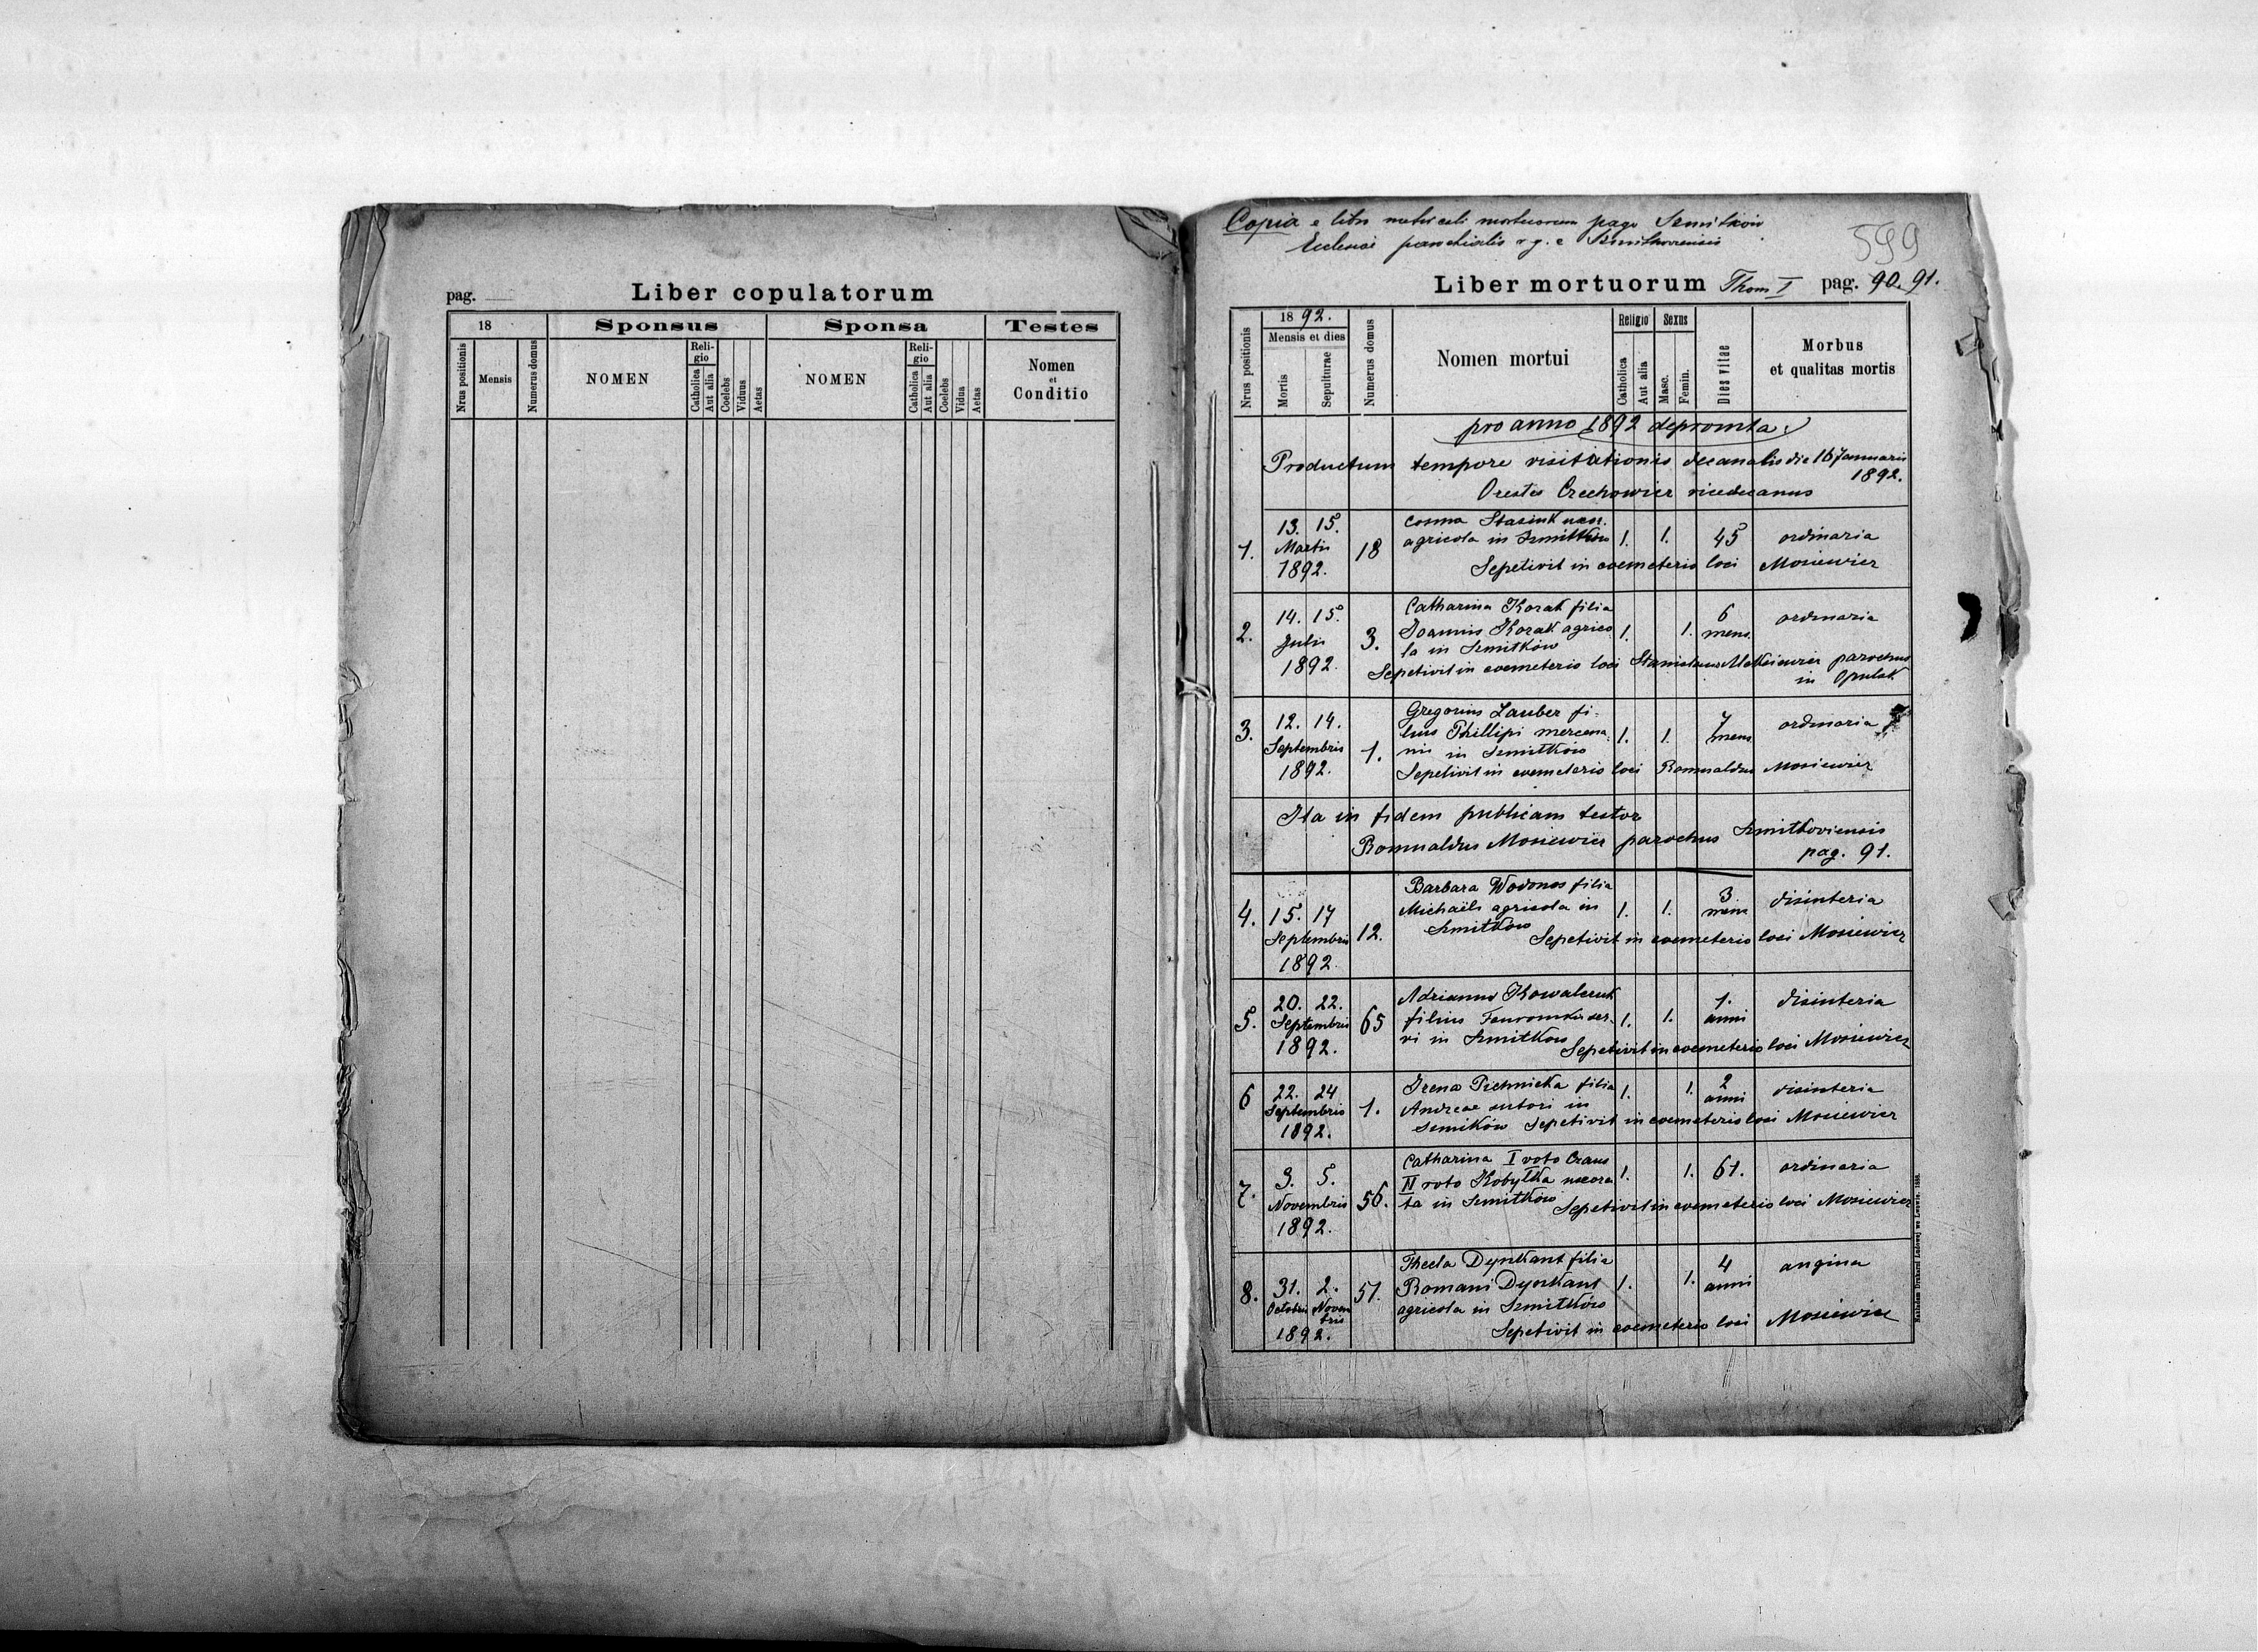 pag.
Liber copulatorum
18
Sponsus
Sponsa
Testes
Nrus positionis
Mensis
Numerus domus
NOMEN
Reli-
gio
Catholica
Aut alia
Coelebs
Viduus
Aetas
NOMEN
Reli-
gio
Catholica
Aut alia
Coelebs
Vidua
Aetas
Nomen
et
Conditio
Copia e libri mortuorum pago Szmitków
Ecclesiae parochialis r. g. c Szmitkoviensis
599
Liber mortuorum Thom I pag. 90. 91.
Nrus positionis
18 92.
Mensis et dies
Mortis
Sepulturae
Numerus domus
Nomen mortui
Religio
Catholica
Aut alia
Sexus
Masc.
Femin.
Dies vitae
Morbus
et qualitas mortis
pro anno 1892 depromta
Productum tempore visitationis decanalis die 16 Januaris
1892.
Orestes Czechowicz vicedecanus
1. 13. 15. Martii 1892. 18
Cosma Stasiuk uxor.
agricola in Szmitków 1. 1. 45 ordinaria
Sepelivit in coemeterio loci Mosiewicz
2. 14. 15. Julii 1892. 3.
Catharina Kozak filia
Joannis Kozak agrico
la in Szmitków 1. 1. 6 mens. ordinaria
Sepelivit in coemeterio loci Stanislaus parochus
in Opulsk
3. 12. 14. Septembris 1892. 1.
Gregorius Zauber fi-
lius Phillipi mercena
rii in Szmitków 1. 1. 7 mens ordinaria
Sepelivit in coemeterio loci Romualdus Mosiewicz
Ita in fidem publicam testor
Romualdus Mosiewicz parochus Szmitkoviensis
pag. 91.
4. 15. 17 Septembris 1892. 12.
Barbara Wodonos filia
Michaëli agricola in
Szmitków 1. 1. 3 mens disinteria
Sepelivit in coemeterio loci Mosiewicz
5. 20. 22. Septembris 1892. 65
Adrianus Kowalczuk
filius ser-
vi in Szmitków 1. 1. 1. anni disinteria
Sepelivit in coemeterio loci Mosiewicz
6 22. 24 Septembris 1892. 1.
Irena Pichnicka filia
Andreae sutori in 1. 1. 2 anni disinteria
Szmików Sepelivit in coemeterio loci Mosiewicz
7. 3. 5. Novembris 1892. 56.
Catharina I voto
II voto Kobyłka uxora
ta in Szmitków 1. 1. 61. ordinaria
Sepelivit in coemeterio loci Mosiewicz
8. 31. 2. Octobris Novem
bris 1892. 51.
Thecla Dyrkant filia
Romani Dyrkant
agricola in Szmitków 1. 1. 4 anni angina
Sepelivit in coemeterio loci Mosiewicz
Nakładem Drukarni Ludowej we Lwowie.